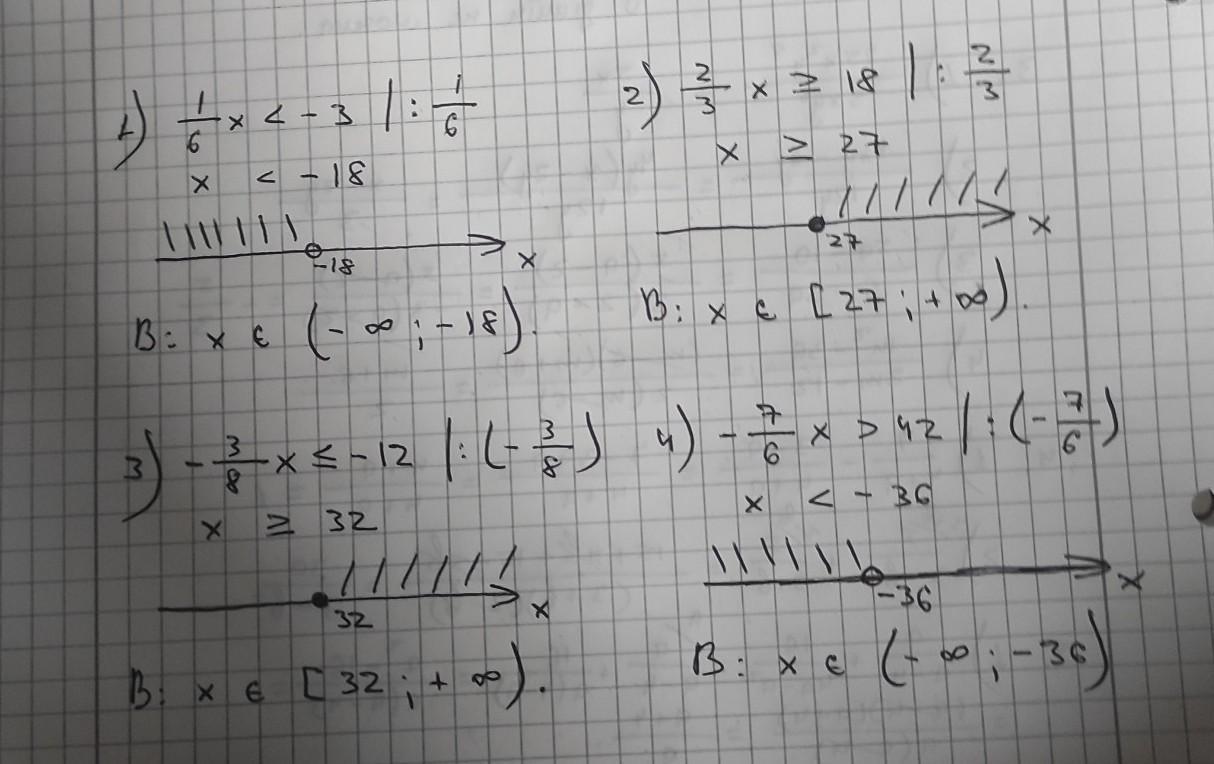 1) 1/6 x < - 3 | : 1/6
x < - 18
-18 x
В: x ϵ (- ∞ ; - 18).
2) 2/3 x ≥ 18 | : 2/3
x ≥ 27
27 x
В: x ϵ [ 27 ; + ∞).
3) - 3/8 x ≤ - 12 | : (- 3/8)
x ≥ 32
32 x
В: x ϵ [ 32 ; + ∞).
4) - 7/6 x > 42 | : (- 7/6)
x < - 36
-36 x
В: x ϵ (- ∞ ; - 36)